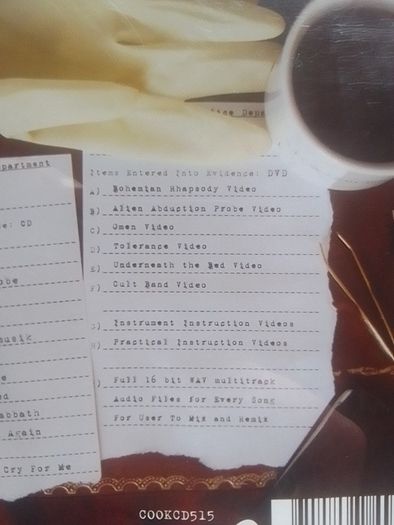 partment
e: CD
obe
musik
e
ed
abbath
Again
Cry For Me
ice Depa
Items Entered Into Evidence: DVD
A) Bohemian Rhapsody Video
B) Alien Abduction Probe Video
C) Omen Video
D) Tolerance Video
E) Underneath the Bed Video
F) Cult Band Video
G) Instrument Instruction Videos
H) Practical Instruction Videos
) Full 16 bit WAV multitrack
Audio Files for Every Song
For User To Mix and Remix
COOKCD515